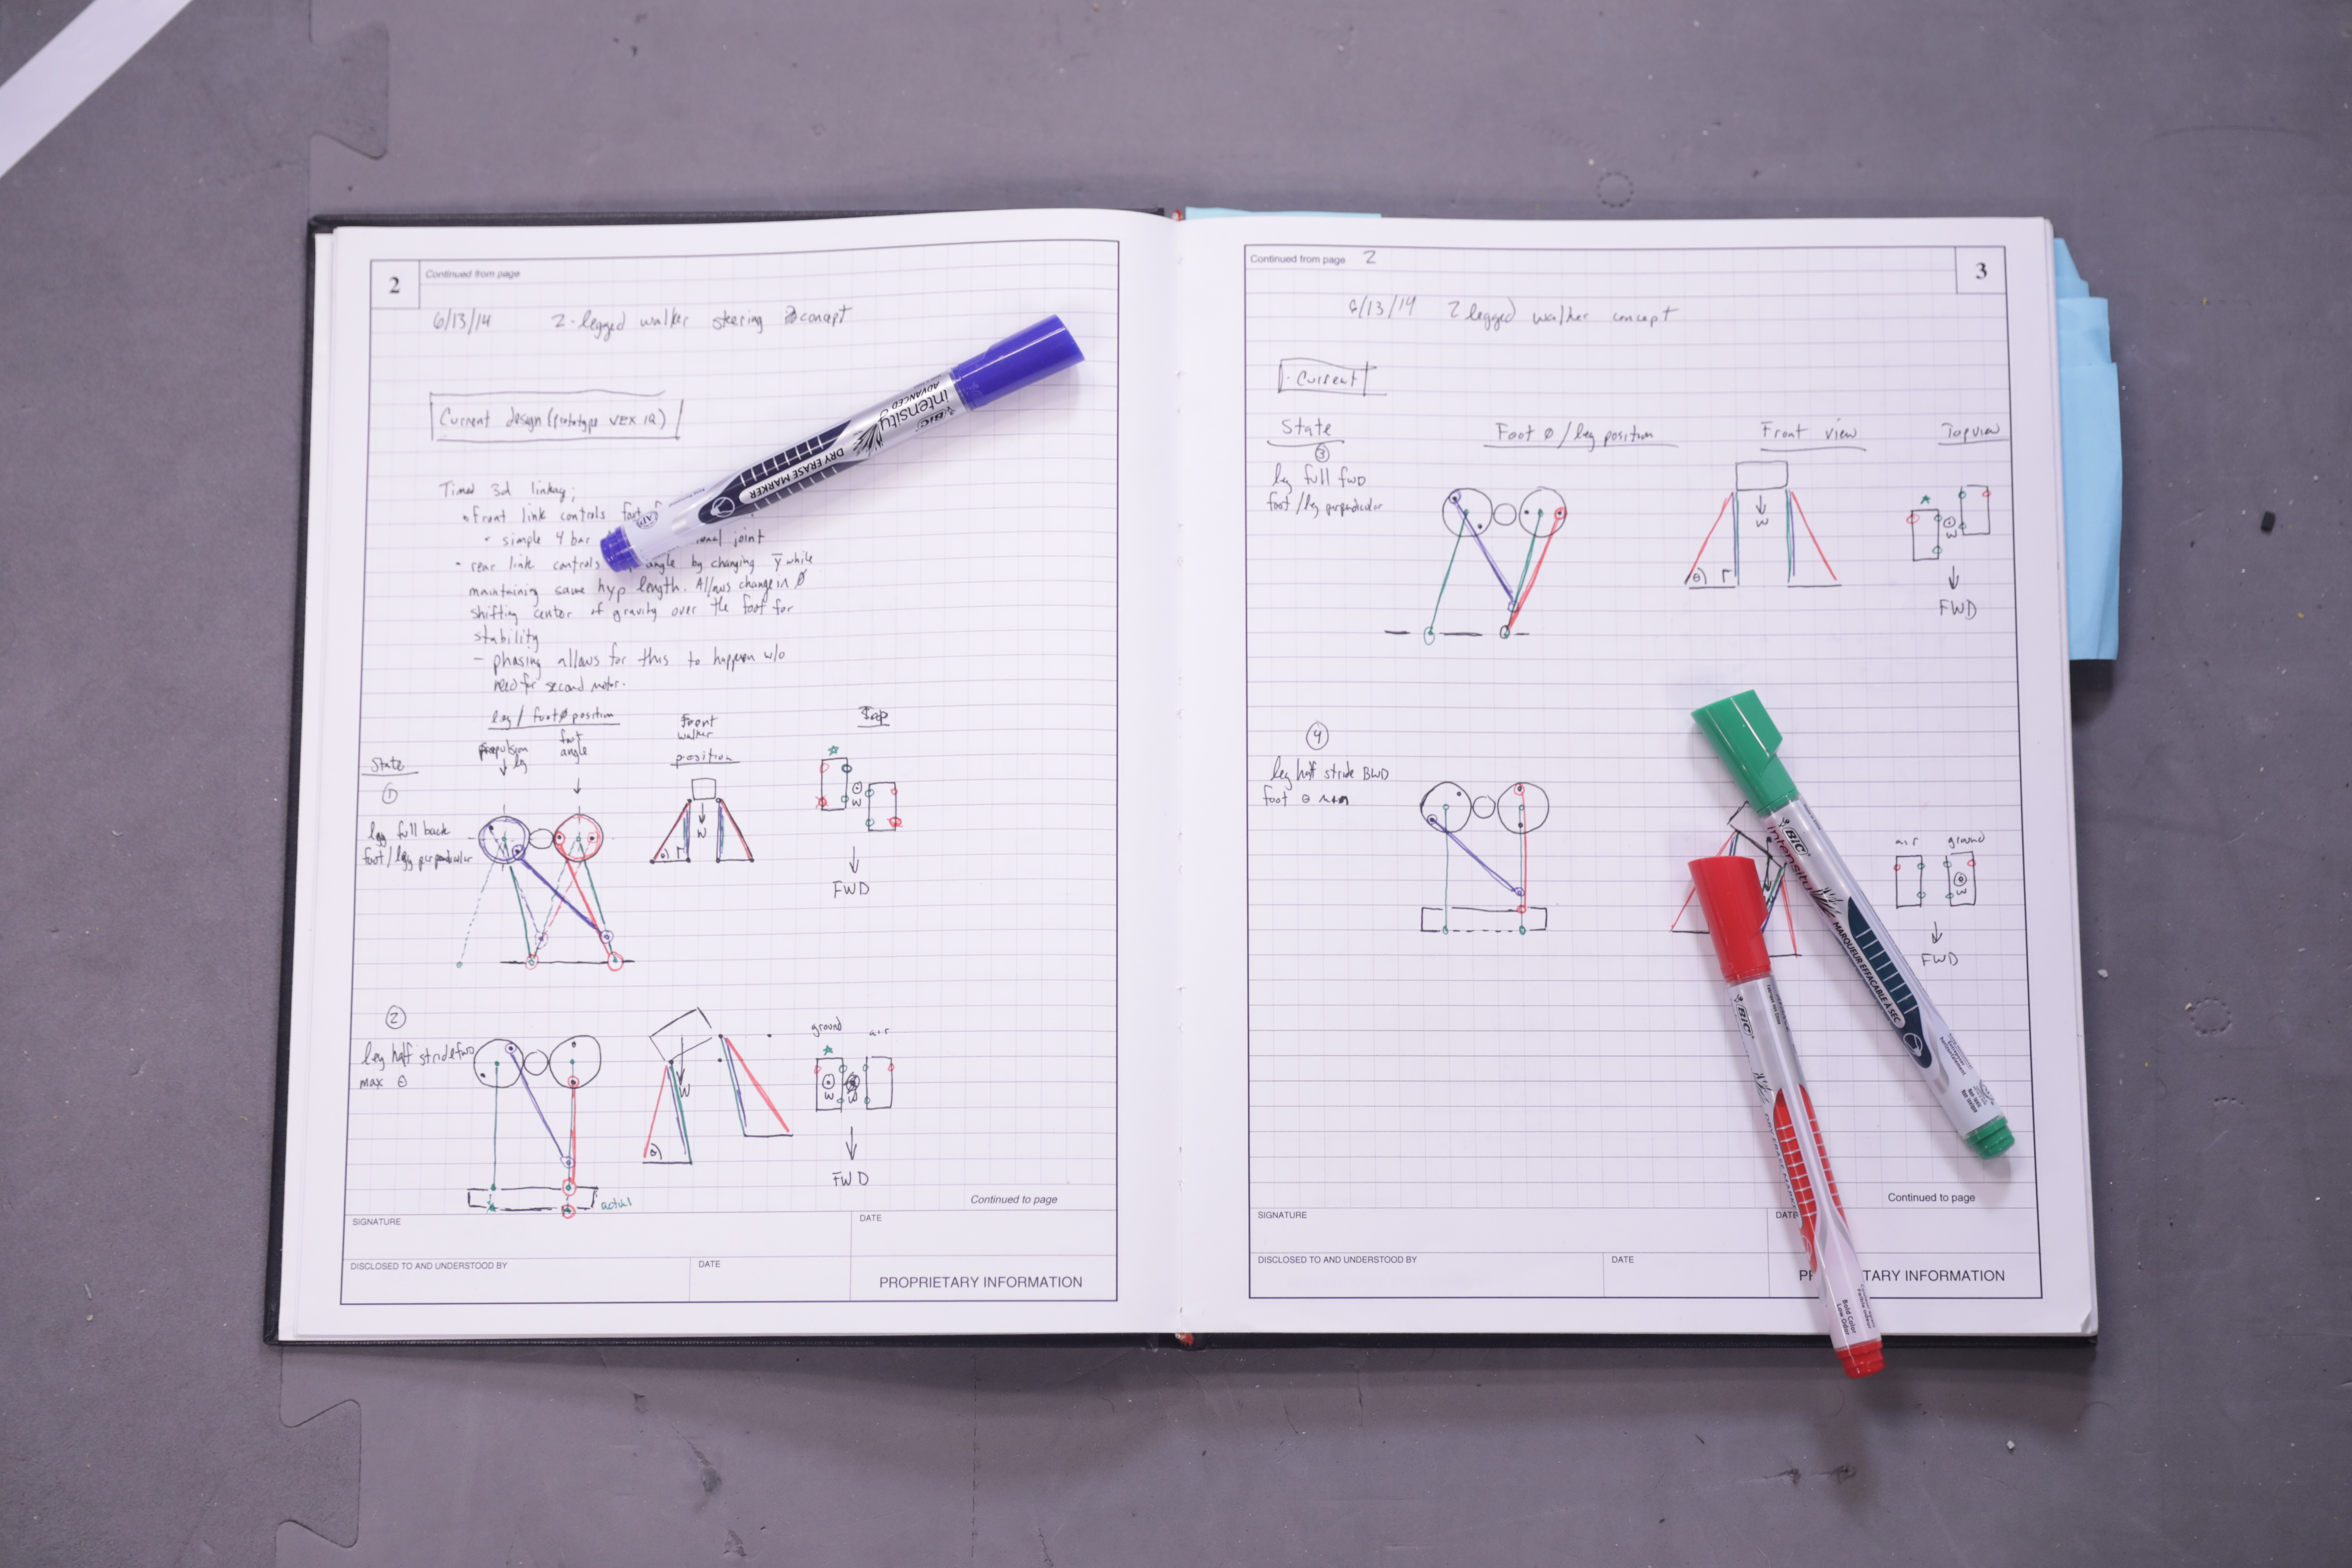 2
Continued from page
6/13/14 2-legged walker steering concept
Current design (prototype VEX IQ)
Timed 3d linkag;
• Front link controls foot
• simple 4 bar joint
• rear link controls angle by changing y̅ while
maintaining same hyp length. Allows change in Ø
shifting center of gravity over the foot for
stability
- phasing allows for this to happen w/o
need for second motor.
leg / foot Ø position
Front
walker
position
Top
State
propulsion
leg
foot
angle
1
leg full back
foot/leg perpendicular
W
θ
W
FWD
2
leg half stride fwd
max θ
W
θ
ground
air
W
W
FWD
actual
Continued to page
SIGNATURE
DATE
DISCLOSED TO AND UNDERSTOOD BY
DATE
PROPRIETARY INFORMATION
BIC
intensity
ADVANCED
DRY ERASE MARKER
Continued from page 2
3
6/13/14 2 legged walker concept
Current
State
Foot Ø / leg position
Front view
Top view
3
leg full fwd
foot/leg perpendicular
W
θ
W
FWD
4
leg half stride BWD
foot θ min
air
ground
W
FWD
Continued to page
SIGNATURE
DATE
DISCLOSED TO AND UNDERSTOOD BY
DATE
INFORMATION
BIC
intensity
MARQUEUR EFFAÇABLE À SEC
BIC
DRY ERASE MARKER
Bold Color
Low Odor